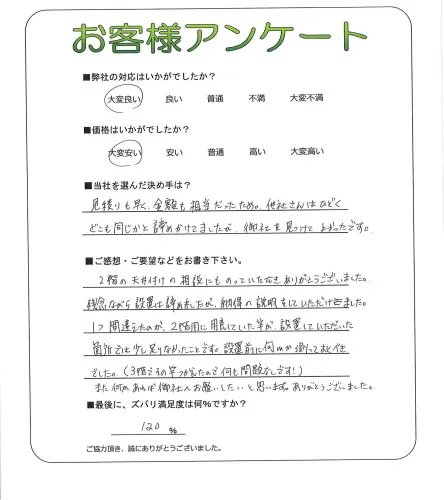 お客様アンケート
■弊社の対応はいかがでしたか?
大変良い 良い 普通 不満 大変不満
■価格はいかがでしたか?
大変安い 安い 普通 高い 大変高い
■当社を選んだ決め手は?
見積りも早く、金額も相当だったため。他社さんはひどく
どこも同じかと諦めかけてましたが、御社を見つけてよかったです。
■ご感想・ご要望などをお書き下さい。
2階の天井付けの相談にものっていただきありがとうございました。
残念ながら設置は諦めましたが、納得の説明をしていただけました。
1つ間違えたのが、2階用に用意していた竿が、設置していただいた
箇所では少し足りなかったことです。設置前に何cmか測っておくべき
でした。(3階用の竿が使えたので何も問題なしです!)
また何かあれば御社にお願いしたいと思います。ありがとうございました。
■最後に、ズバリ満足度は何%ですか?
120 %
ご協力頂き、誠にありがとうございました。